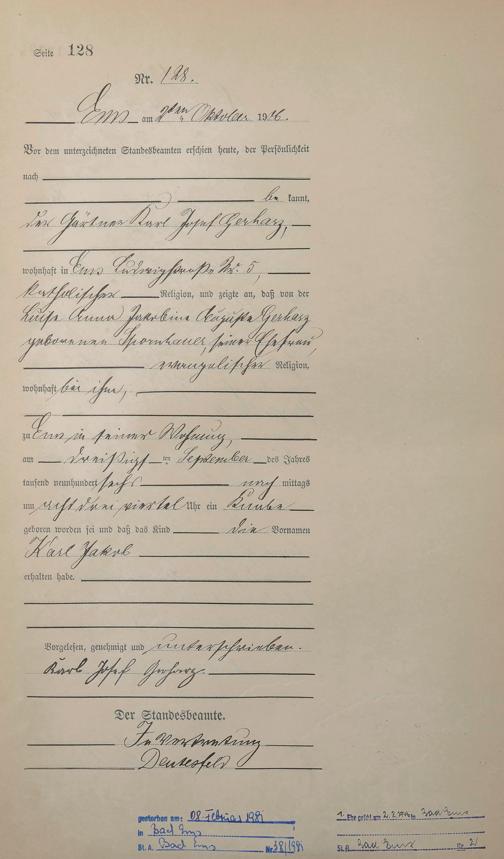 Seite 128
Nr. 128.
Ems am 2ten Oktober 1906.
Vor dem unterzeichneten Standesbeamten erschien heute, der Persönlichkeit
nach
be kannt,
der Gärtner Karl Josef Gerharz,
wohnhaft in Ems Ludwigstraße Nr. 5,
katholischer Religion, und zeigte an, daß von der
Luise Anna Jakobine Auguste Gerharz
geborenen Thornhauer, seiner Ehefrau,
evangelischer Religion,
wohnhaft bei ihm,
zu Ems in seiner Wohnung,
am dreißigsten September des Jahres
tausend neunhundert sechs nach mittags
um acht drei viertel Uhr ein Knabe
geboren worden sei und daß das Kind die Vornamen
Karl Jakob
erhalten habe.
Vorgelesen, genehmigt und unterschrieben.
Karl Josef Gerharz.
Der Standesbeamte.
In Vertretung
gestorben am: 08. Februar
in Bad Ems
St. A. Bad Ems Nr.
1. Ehe gesch. am Bad Ems
St. A. Bad Ems Nr.